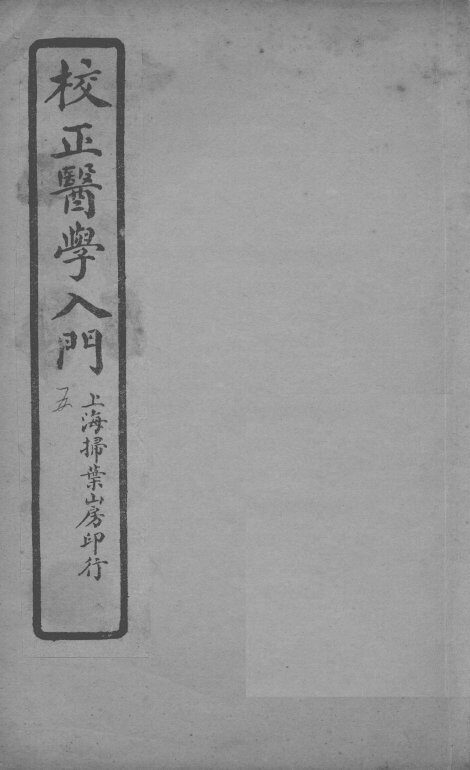 校正醫學入門
五
上海掃葉山房印行